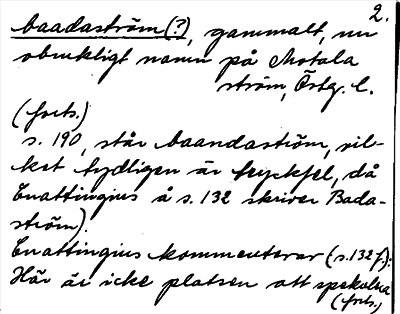 2.
baadaström(?), gammalt, nu
obrukligt namn på Motala
ström, Östg. l.
(forts.)
s. 190, står baandaström, vil-
ket tydligen är tryckfel, då
Enattingius å s. 132 skriver Bada-
ström).
Enattingius kommenterar (s. 132 f.):
Här är icke platsen att spekulera
(forts.)